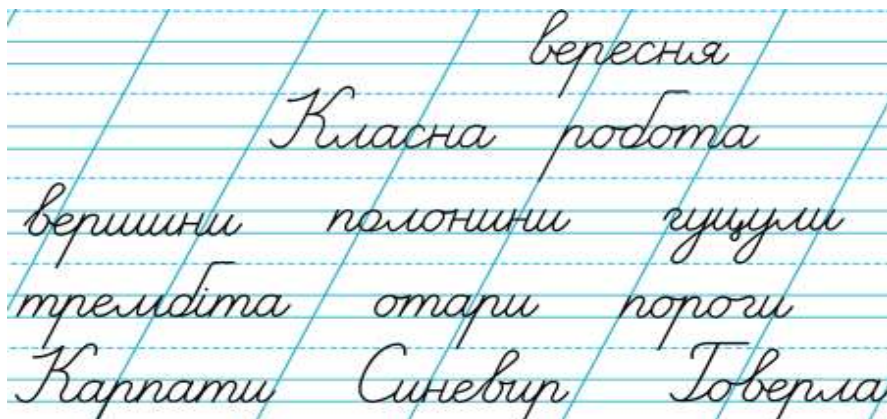 вересня
Класна робота
вершини полонини гуцули
трембіта отари пороги
Карпати Синевир Говерла